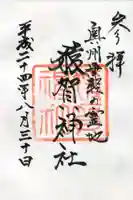 参拝
奥州平賀の霊地
猿賀神社
平成二十四年八月三十日